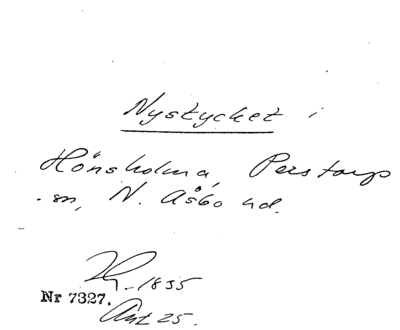 Nystycket i
Hönsholma, Perstorp
sn, N. Åsbo hd.
1835
Nr 7327.
Ant 25.